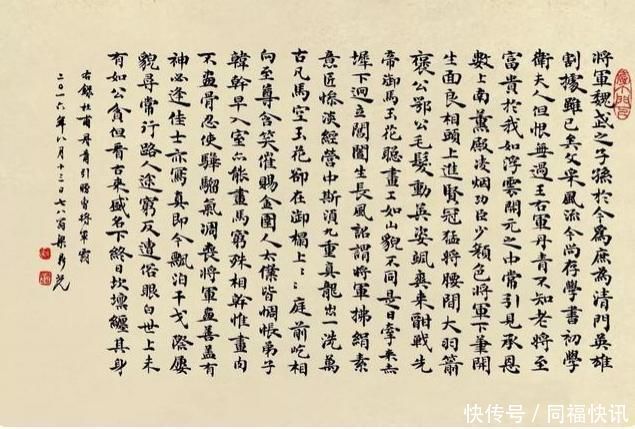 將軍魏武之子孫於今為庶為清門英雄
割據雖已矣文采風流今尚存學書初學
衛夫人但恨無過王右軍丹青不知老將至
富貴於我如浮雲開元之中常引見承恩
數上南薰殿凌烟功臣少顏色將軍下筆開
生面良相頭上進賢冠猛將腰間大羽箭
褒公鄂公毛髮動英姿颯爽來酣戰先
帝御馬玉花驄畫工如山貌不同是日牽來赤
墀下迥立閶闔生長風詔謂將軍拂絹素
意匠慘淡經營中斯須九重真龍出一洗萬
古凡馬空玉花卻在御榻上:庭前屹相
向至尊含笑催賜金圉人太僕皆惆悵弟子
韓幹早入室亦能畫馬窮殊相幹惟畫肉
不畫骨忍使驊騮氣凋喪將軍畫善蓋有
神必逢佳士亦寫真即今飄泊干戈際屢
貌尋常行路人途窮反遭俗眼白世上未
有如公貧但看古來盛名下終日坎壈纏其身
右錄杜甫丹青引贈曹將軍霸
二〇一六年八月十三日七八翁梁
快传号/同福快讯